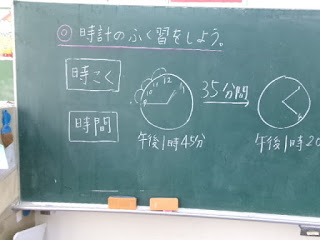 ◎時計のふく習をしよう。
時こく
時間
9 10 11 12 1
35分間
午後1時45分
午後1時20